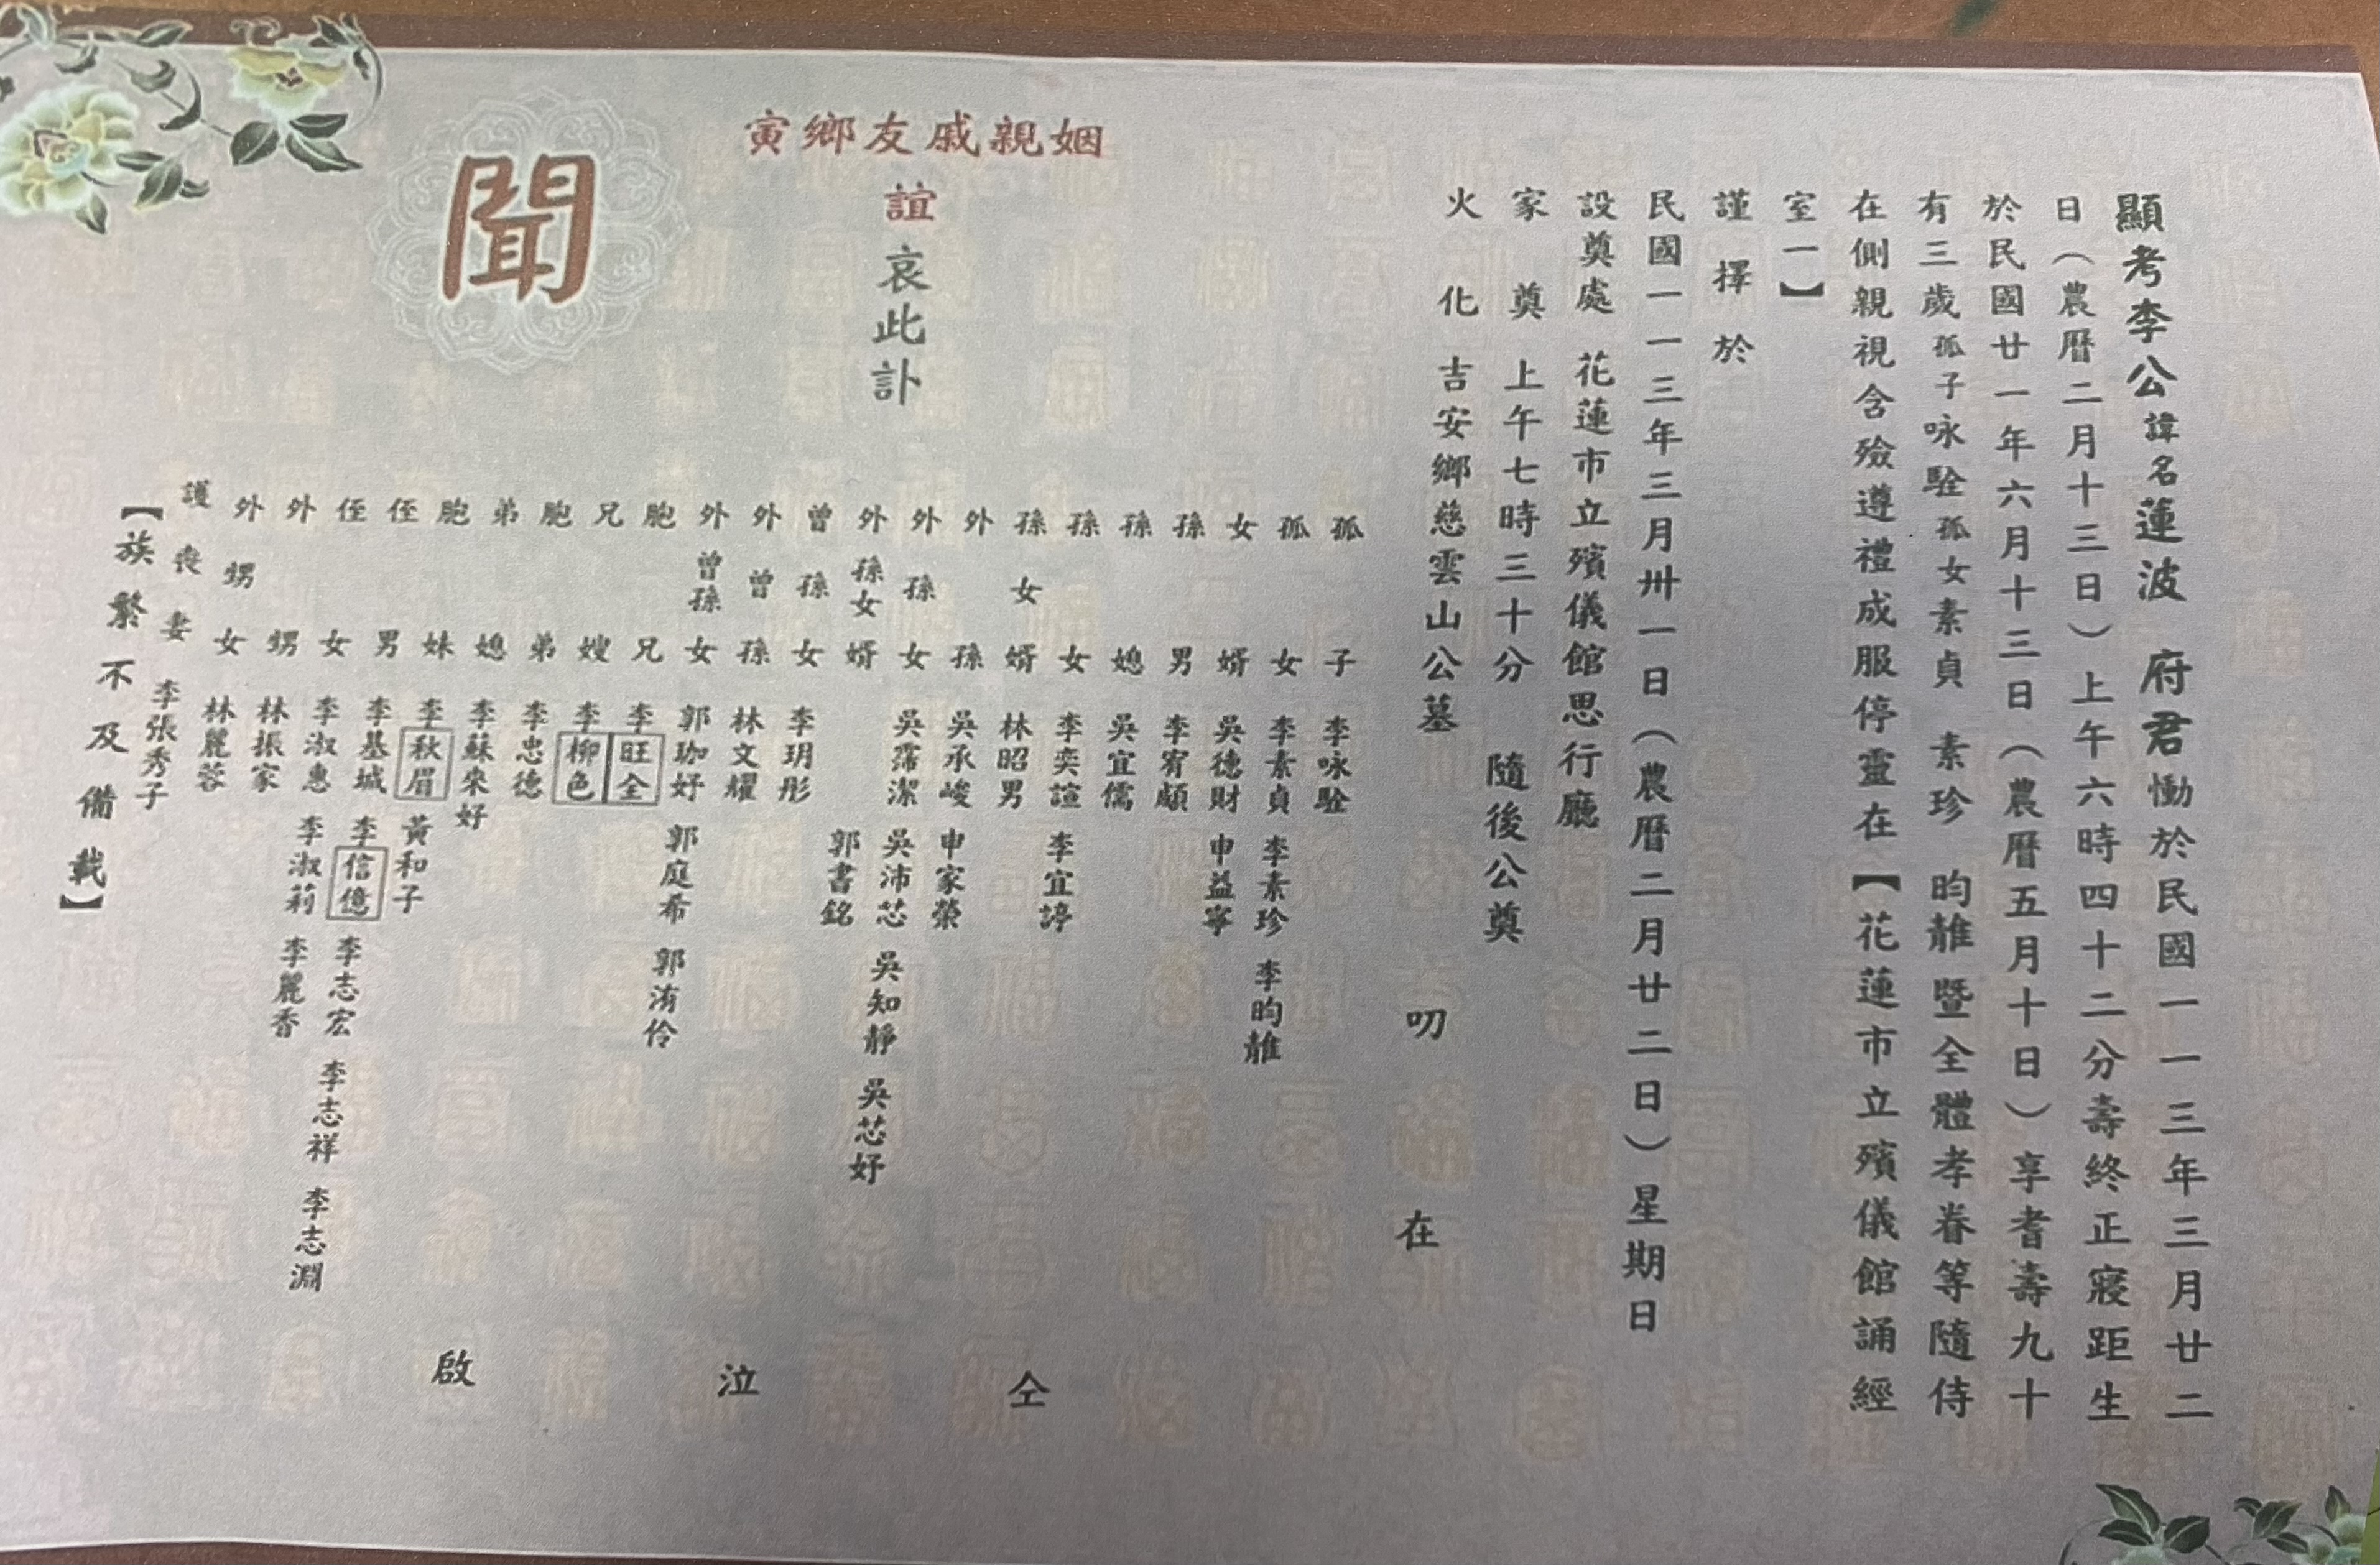 顯考李公諱名蓮波　府君慟於民國一一三年三月廿二
日（農曆二月十三日）上午六時四十二分壽終正寢距生
於民國廿一年六月十三日（農曆五月十日）享耆壽九十
有三歲孤子咏駩孤女素貞　素珍　昀雝暨全體孝眷等隨侍
在側親視含殮遵禮成服停靈在【花蓮市立殯儀館誦經
室一】
謹擇於
民國一一三年三月卅一日（農曆二月廿二日）星期日
設奠處　花蓮市立殯儀館思行廳
家奠　上午七時三十分　隨後公奠
火化　吉安鄉慈雲山公墓
叨在
姻親戚友鄉寅
誼哀此訃
聞
孤子　李咏駩
孤女　李素貞　李素珍　李昀雝
女婿　吳德財　申益寧
孫男　李宥頗
孫媳　吳宜儒
孫女　李奕諠　李宜諄
孫女婿　林昭男
外孫　吳承峻　申家榮
外孫女　吳霈潔　吳沛芯　吳知靜　吳芯妤
外孫女婿　郭書銘
曾孫女　李玥彤
外曾孫　林文耀
外曾孫女　郭珈妤　郭庭希　郭洧伶
胞兄　李旺全
兄嫂　李柳色
胞弟　李忠德
弟媳　李蘇來好
胞妹　李秋眉　黃和子
侄男　李基城　李信億　李志宏　李志祥　李志淵
侄女　李淑惠　李淑莉　李麗香
外甥　林振家
外甥女　林麗蓉
護喪妻　李張秀子
【族繁不及備載】
仝泣啟